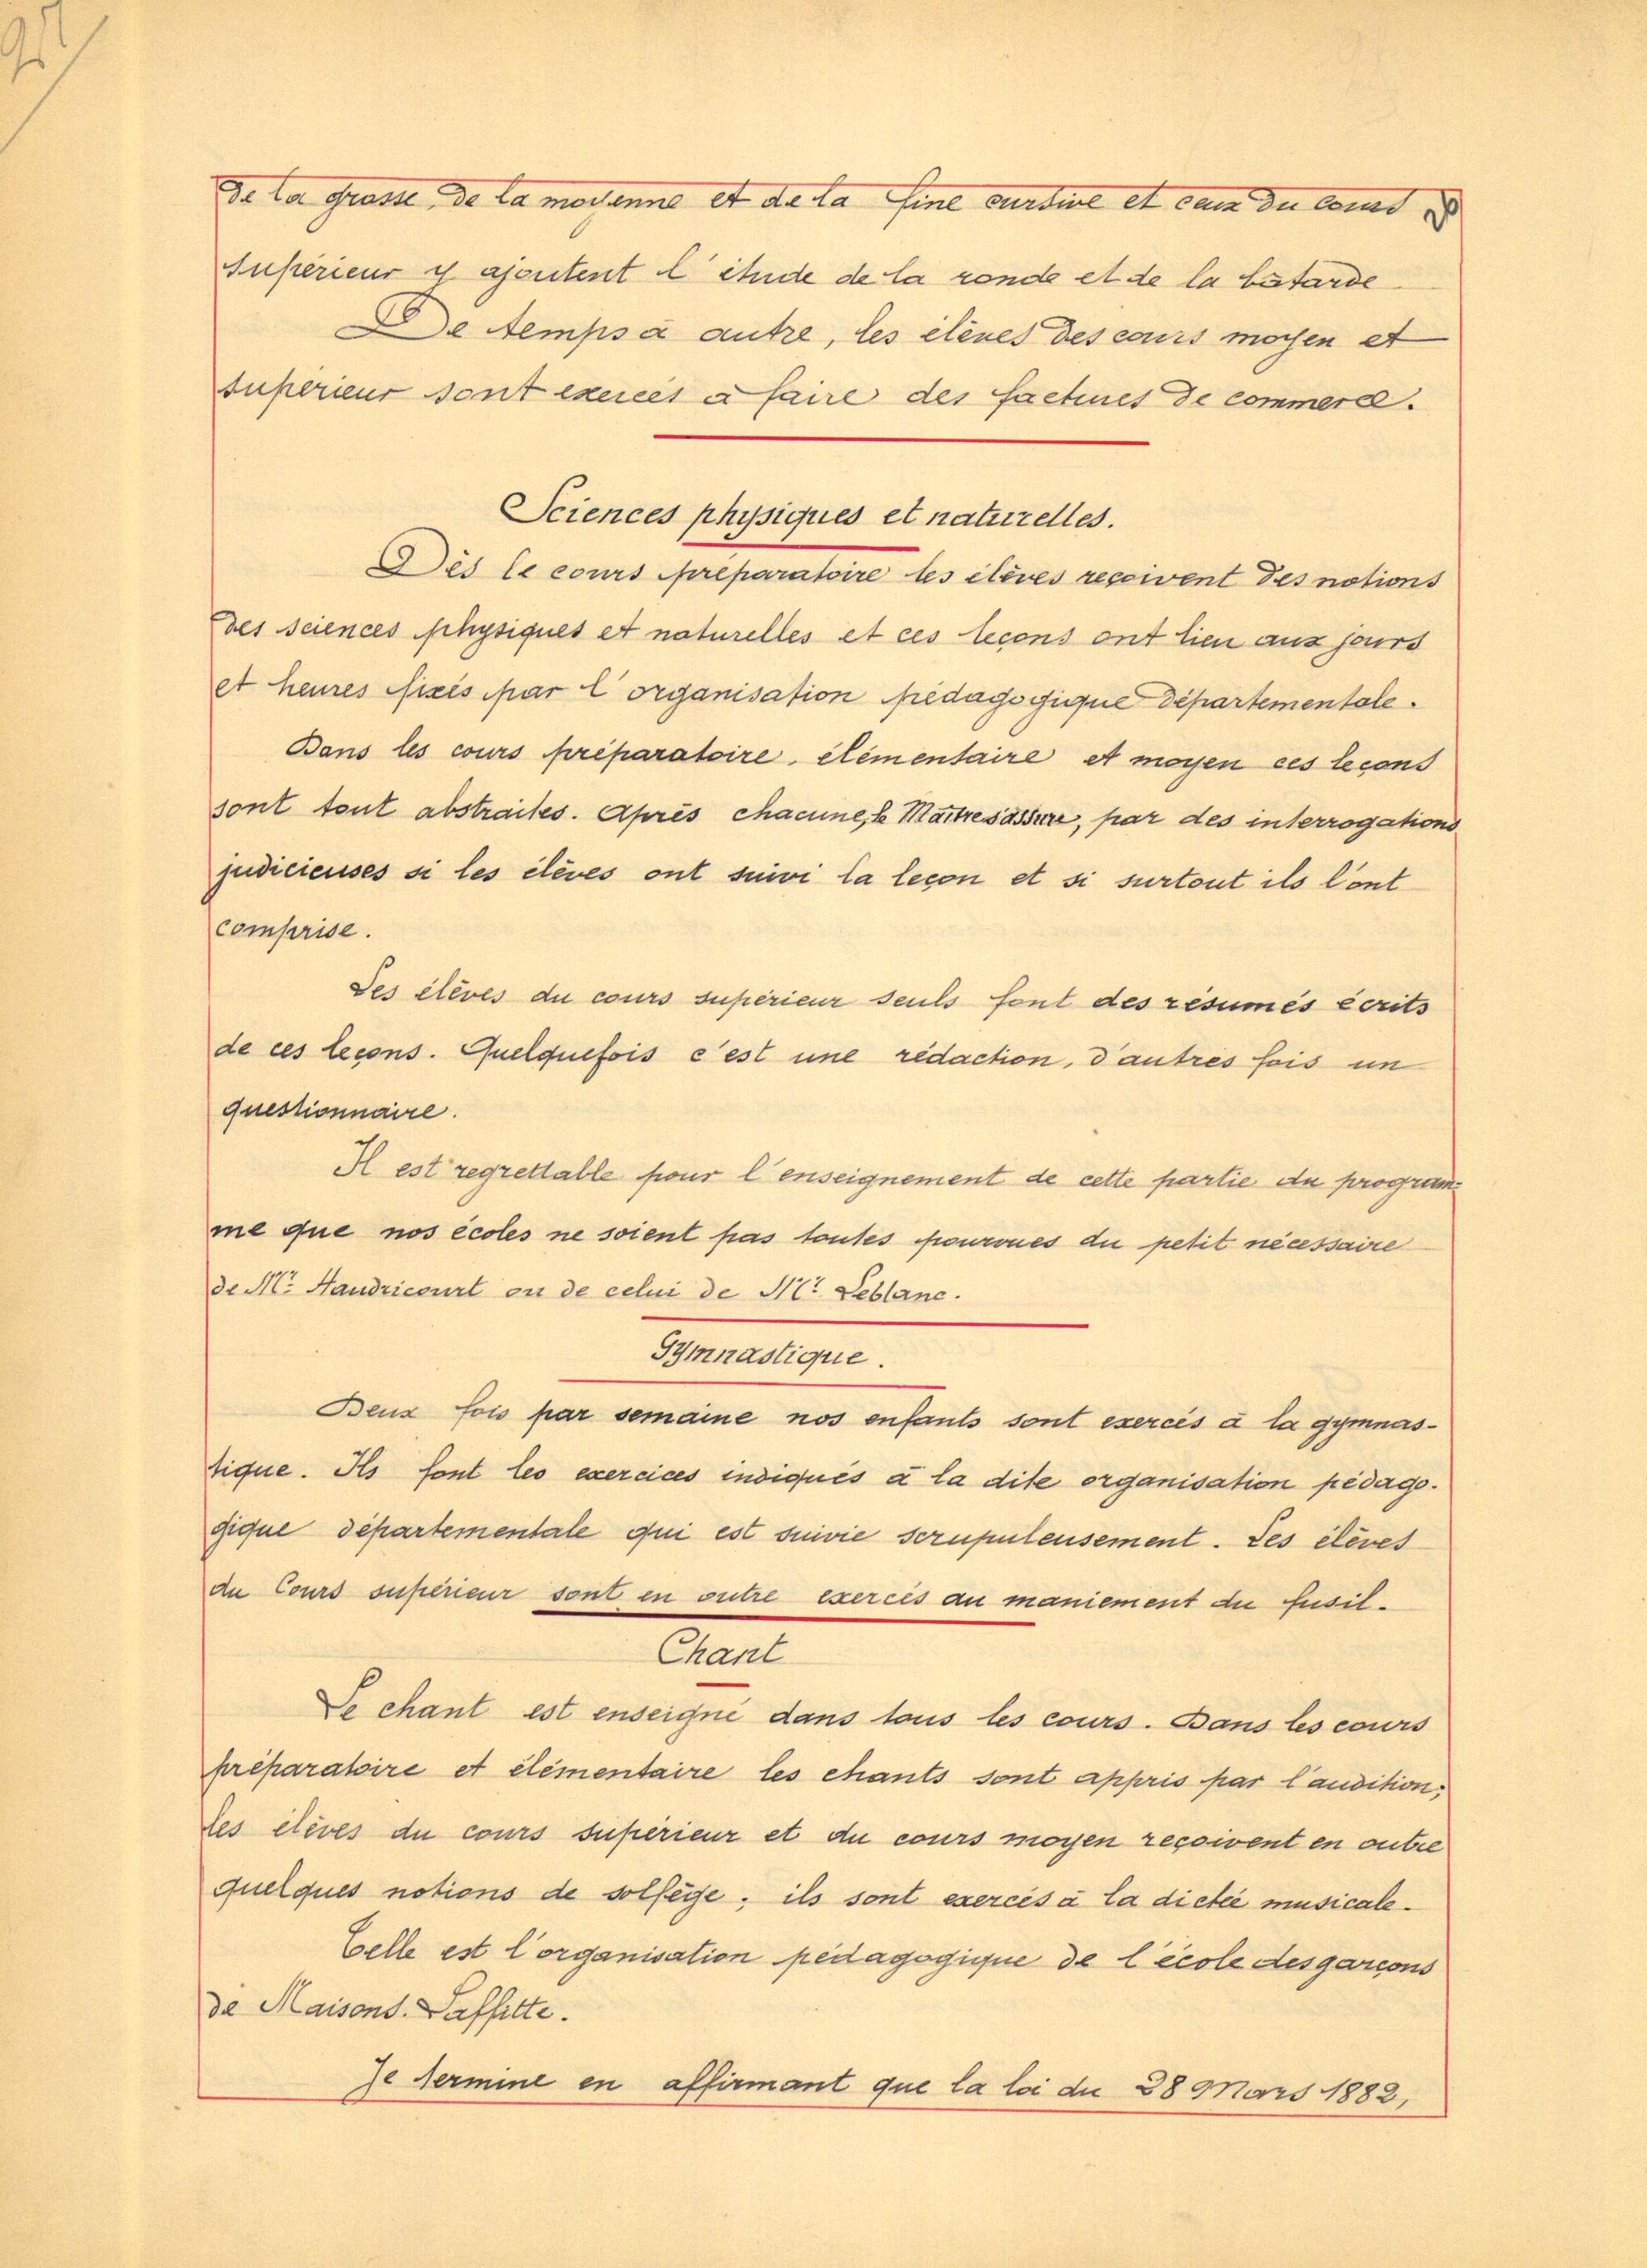 de la grosse, de la moyenne et de la fine cursive et ceux du cours
Supérieur y ajoutent l'étude de la ronde et de la bâtarde
De temps à autre, les élèves des cours moyen et
supérieur sont exercés à faire des factures de commerce.
Sciences physiques et naturelles.
Dès le cours préparatoire les élèves reçoivent des notions
des sciences physiques et naturelles et ces leçons ont lieu aux jours
et heures fixés par l'organisation pédagogique départementale.
Dans les cours préparatoire, élémentaire et moyen ces leçons
sont tout abstraites. Après chacune, le Maître s'assure, par des interrogations
judicieuses si les élèves ont suivi la leçon et si surtout ils l'ont
comprise.
Les élèves du cours supérieur seuls font des résumés écrits
de ces leçons. Quelquefois c'est une rédaction, d'autres fois un
questionnaire.
Il est regrettable pour l'enseignement de cette partie du program-
me que nos écoles ne soient pas toutes pourvues du petit nécessaire
de Mr. Handricourt ou de celui de Mr. Leblanc.
Gymnastique.
Deux fois par semaine nos enfants sont exercés à la gymnas-
tique. Ils font les exercices indiqués à la dite organisation pédago-
gique départementale qui est suivie scrupuleusement. Les élèves
du Cours supérieur sont en outre exercés au maniement du fusil.
Chant
Le chant est enseigné dans tous les cours. Dans les cours
préparatoire et élémentaire les chants sont appris par l'audition;
les élèves du cours supérieur et du cours moyen reçoivent en outre
quelques notions de solfège; ils sont exercés à la dictée musicale.
Telle est l'organisation pédagogique de l'école des garçons
de Maisons-Laffitte.
Je termine en affirmant que la loi du 28 Mars 1882,